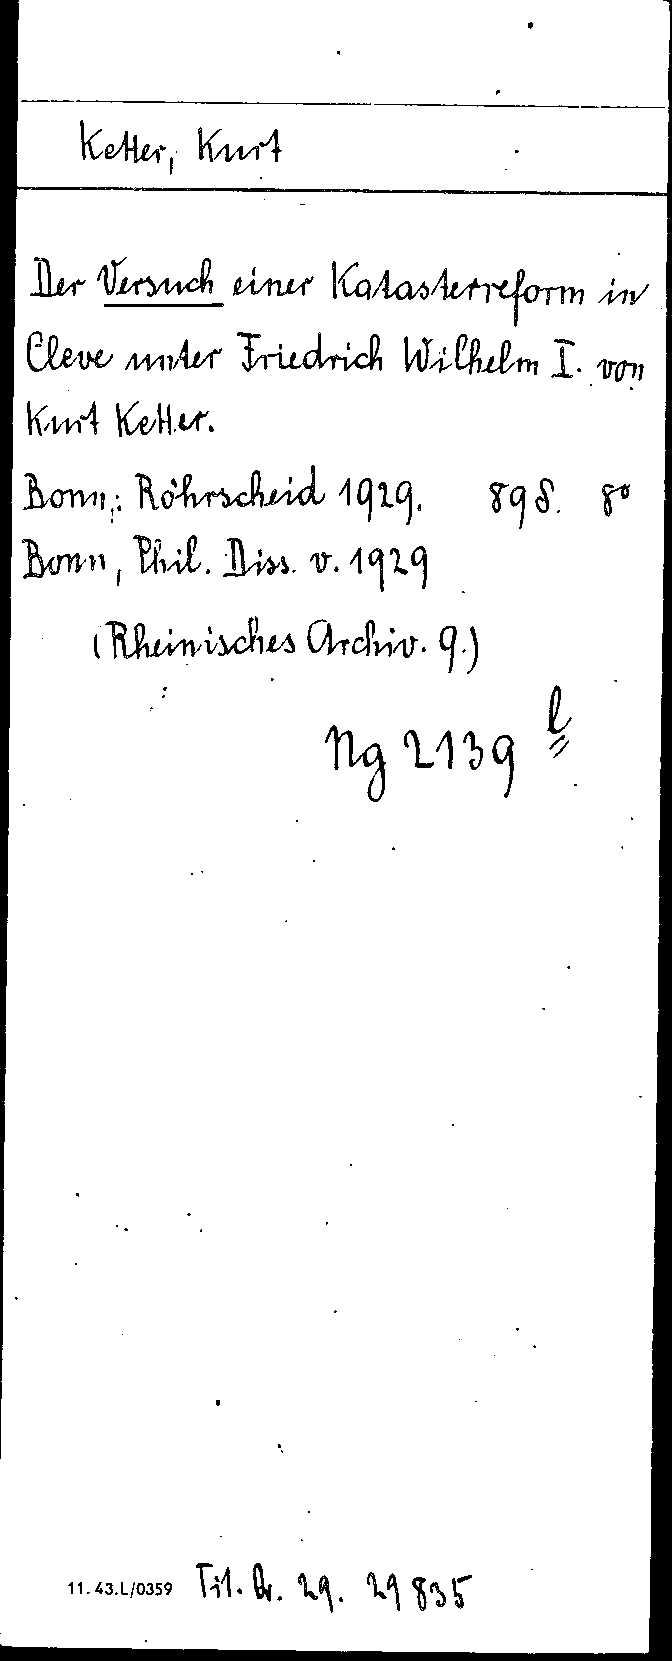 Ketter, Kurt
Der Versuch einer Katasterreform in
Cleve unter Friedrich Wilhelm I. von
Kurt Ketter.
Bonn: Röhrscheid 1929. 89 S. 8°
Bonn, Phil. Diss. v. 1929
(Rheinisches Archiv. 9.)
Ng 2139 l
11.43.L/0359 Tit. Dr. 29. 29835